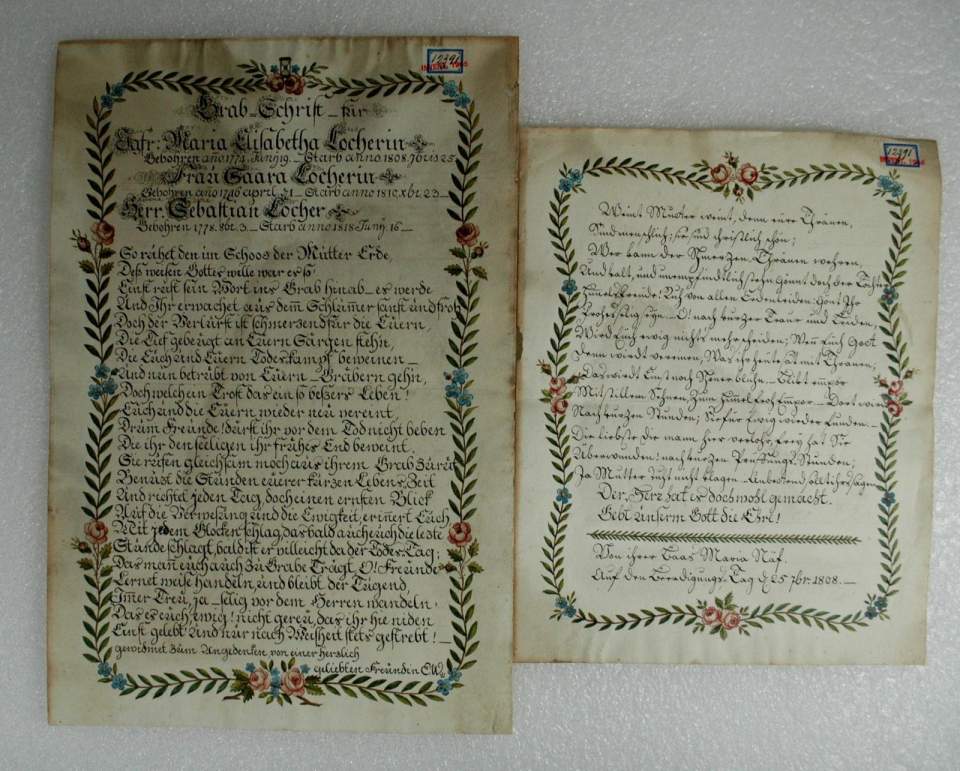 12391
Grab-Schrift – für
Jgfr: Maria Elisabetha Locherin
Gebohren año 1774. Junÿ 19. – Starb añno 1808. 7br. 25
Frau Saara Locherin
Gebohren año 1746 april. 21 – Starb anno 1810. Xbr. 23 –
Herr. Sebastian Locher
Gebohren 1778. 8br. 3. – Starb anno 1818 Junÿ. 16 –
So rühet den im Schoos der Mütter Erde,
Deß weisen Gottes wille war es so
Einst reift sein Wort ins Grab hinab – es werde
Und Ihr erwachet aüs dem̃ Schlüm̃er sanft ünd froh
Doch der Verlürst ist schmerzend für die Eüern,
Die tief gebeügt an Eüern Särgen stehn,
Die Eüch ünd Eüern Todeskampf beweinen –
Und nün betrübt von Eüern – Gräbern gehn,
Doch welch ein Trost das ein so beßers Leben!
Eüch ünd die Eüern wieder neü vereint,
Drüm Freünde! dürft ihr vor dem Tod nicht beben
Die ihr den seeligen ihr frühes End beweint.
Sie rüfen gleichsam noch aüs ihrem Grab zürük
Benüzt die Stünden eüerer kürzen Lebens Zeit
Und richtet jeden Tag, doch einen ernsten Blick
Aüf die Verwesüng ünd die Ewigkeit, eriñert Eüch
Mit jedem Glocken schlag, das bald aüch eüch die lezte
Stünde schlagt, bald ist er villeicht da der Todes-Tag;
Das mañ eüch aüch zü Grabe Trägt, O! Freünde
Lernet weise handeln, ünd bleibt der Tügend
Im̃er Treü, ja – selig vor dem Herren wandeln,
Das es eüch, ewig! nicht gereü, das ihr hie niden
Einst gelebt ünd nür nach Weisheit stets gestrebt! –
gewidmet züm Angedenken von einer herzlich
geliebten Freündin
12391
Weint Mutter weint, denn eure Thränen,
Sind menschlich; sie sind christlich schön;
Wer kann der Schmerzen Thränen wehren,
Und kalt, und unempfindtlich stehn Gönnt doch der Tochter
Himels freude! Ruh von allen Erdenleiden: Gönt Ihr
O! nach kurzer Traur und Leiden,
Wird Euch ewig nichts mehr scheiden; Wer Euch Gott
Denn wird vereinen, Was ihr heute sät mit Thränen,
Das wird Einst noch schöner blühn – Blikt empor
Mit stillem Sehnen, zum Himel froh Empor – Dort wird
Nach kurzen Stunden; Sie für Ewig wieder funden –
Die liebste die mann hier verlohr, Frey hat Sie
Überwunden! nach kurzen Prüfungs Stunden,
Ja Mutter nicht klagen – Anbettend, solt ihr sagen
Der Herr hat es doch wohl gemacht.
Gebt ünserm Gott die Ehre!
Von ihrer Baas Maria Näf.
Auf den Beerdigungs-Tag d 25 7br: 1808. –